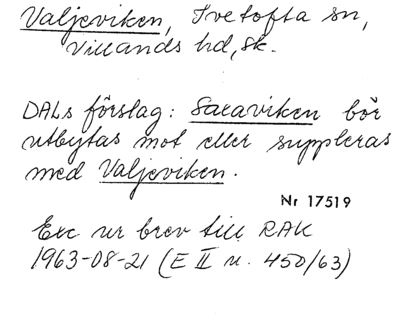 Valjeviken, Ivetofta sn,
Villands hd, Sk.
DALs förslag: Saraviken bör
utbytas mot eller suppleras
med Valjeviken.
Nr 17519
Exc ur brev till RAK
1963-08-21 (E II u. 450/63)